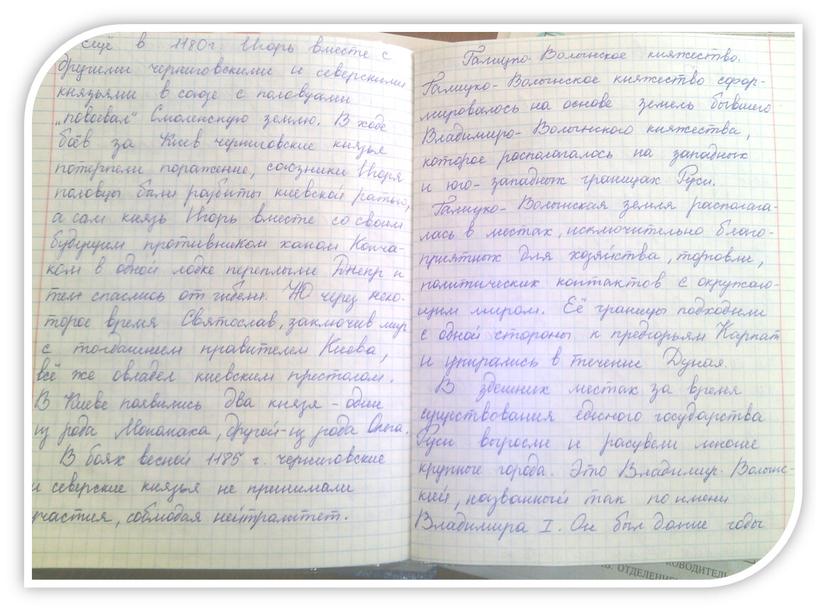 Ещё в 1180 г. Игорь вместе с
другими черниговскими и северскими
князьями в союзе с половцами
„повоевал" Смоленскую землю. В ходе
боёв за Киев черниговские князья
потерпели поражение, союзники Игоря
половцы были разбиты киевской ратью,
а сам князь Игорь вместе со своим
будущим противником ханом Конча-
ком в одной лодке переплыли Днепр и
тем спаслись от гибели. Но через неко-
торое время Святослав, заключив мир
с тогдашним правителем Киева,
всё же овладел киевским престолом.
В Киеве появились два князя - один
из рода Мономаха, другой - из рода Олега.
В боях весной 1185 г. черниговские
и северские князья не принимали
участия, соблюдая нейтралитет.
Галицко-Волынское княжество.
Галицко-Волынское княжество сфор-
мировалось на основе земель бывшего
Владимиро-Волынского княжества,
которое располагалось на западных
и юго-западных границах Руси.
Галицко-Волынская земля располага-
лась в местах, исключительно благо-
приятных для хозяйства, торговли,
политических контактов с окружаю-
щим миром. Её границы подходили
с одной стороны к предгорьям Карпат
и упирались в течение Дуная.
В здешних местах за время
существования единого государства
Руси выросли и расцвели многие
крупные города. Это Владимир-Волынс-
кий, названный так по имени
Владимира I. Он был долгие годы
ОВОДИТЕЛЬ
ОТДЕЛЕНИЕ